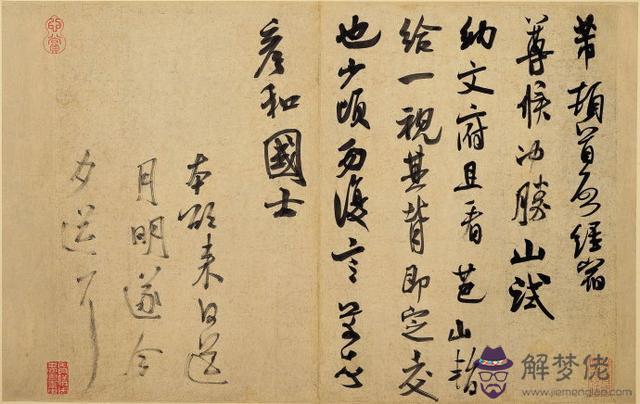 芾頓首啟經宿
尊候冲勝山試
納文府且看芭山暫
給一視其背即定交
也少頃勿復言芾頓首
彥和國士
本欲來日送
月明遂今
夕送耳
解梦佬
www.jiemenglao.com